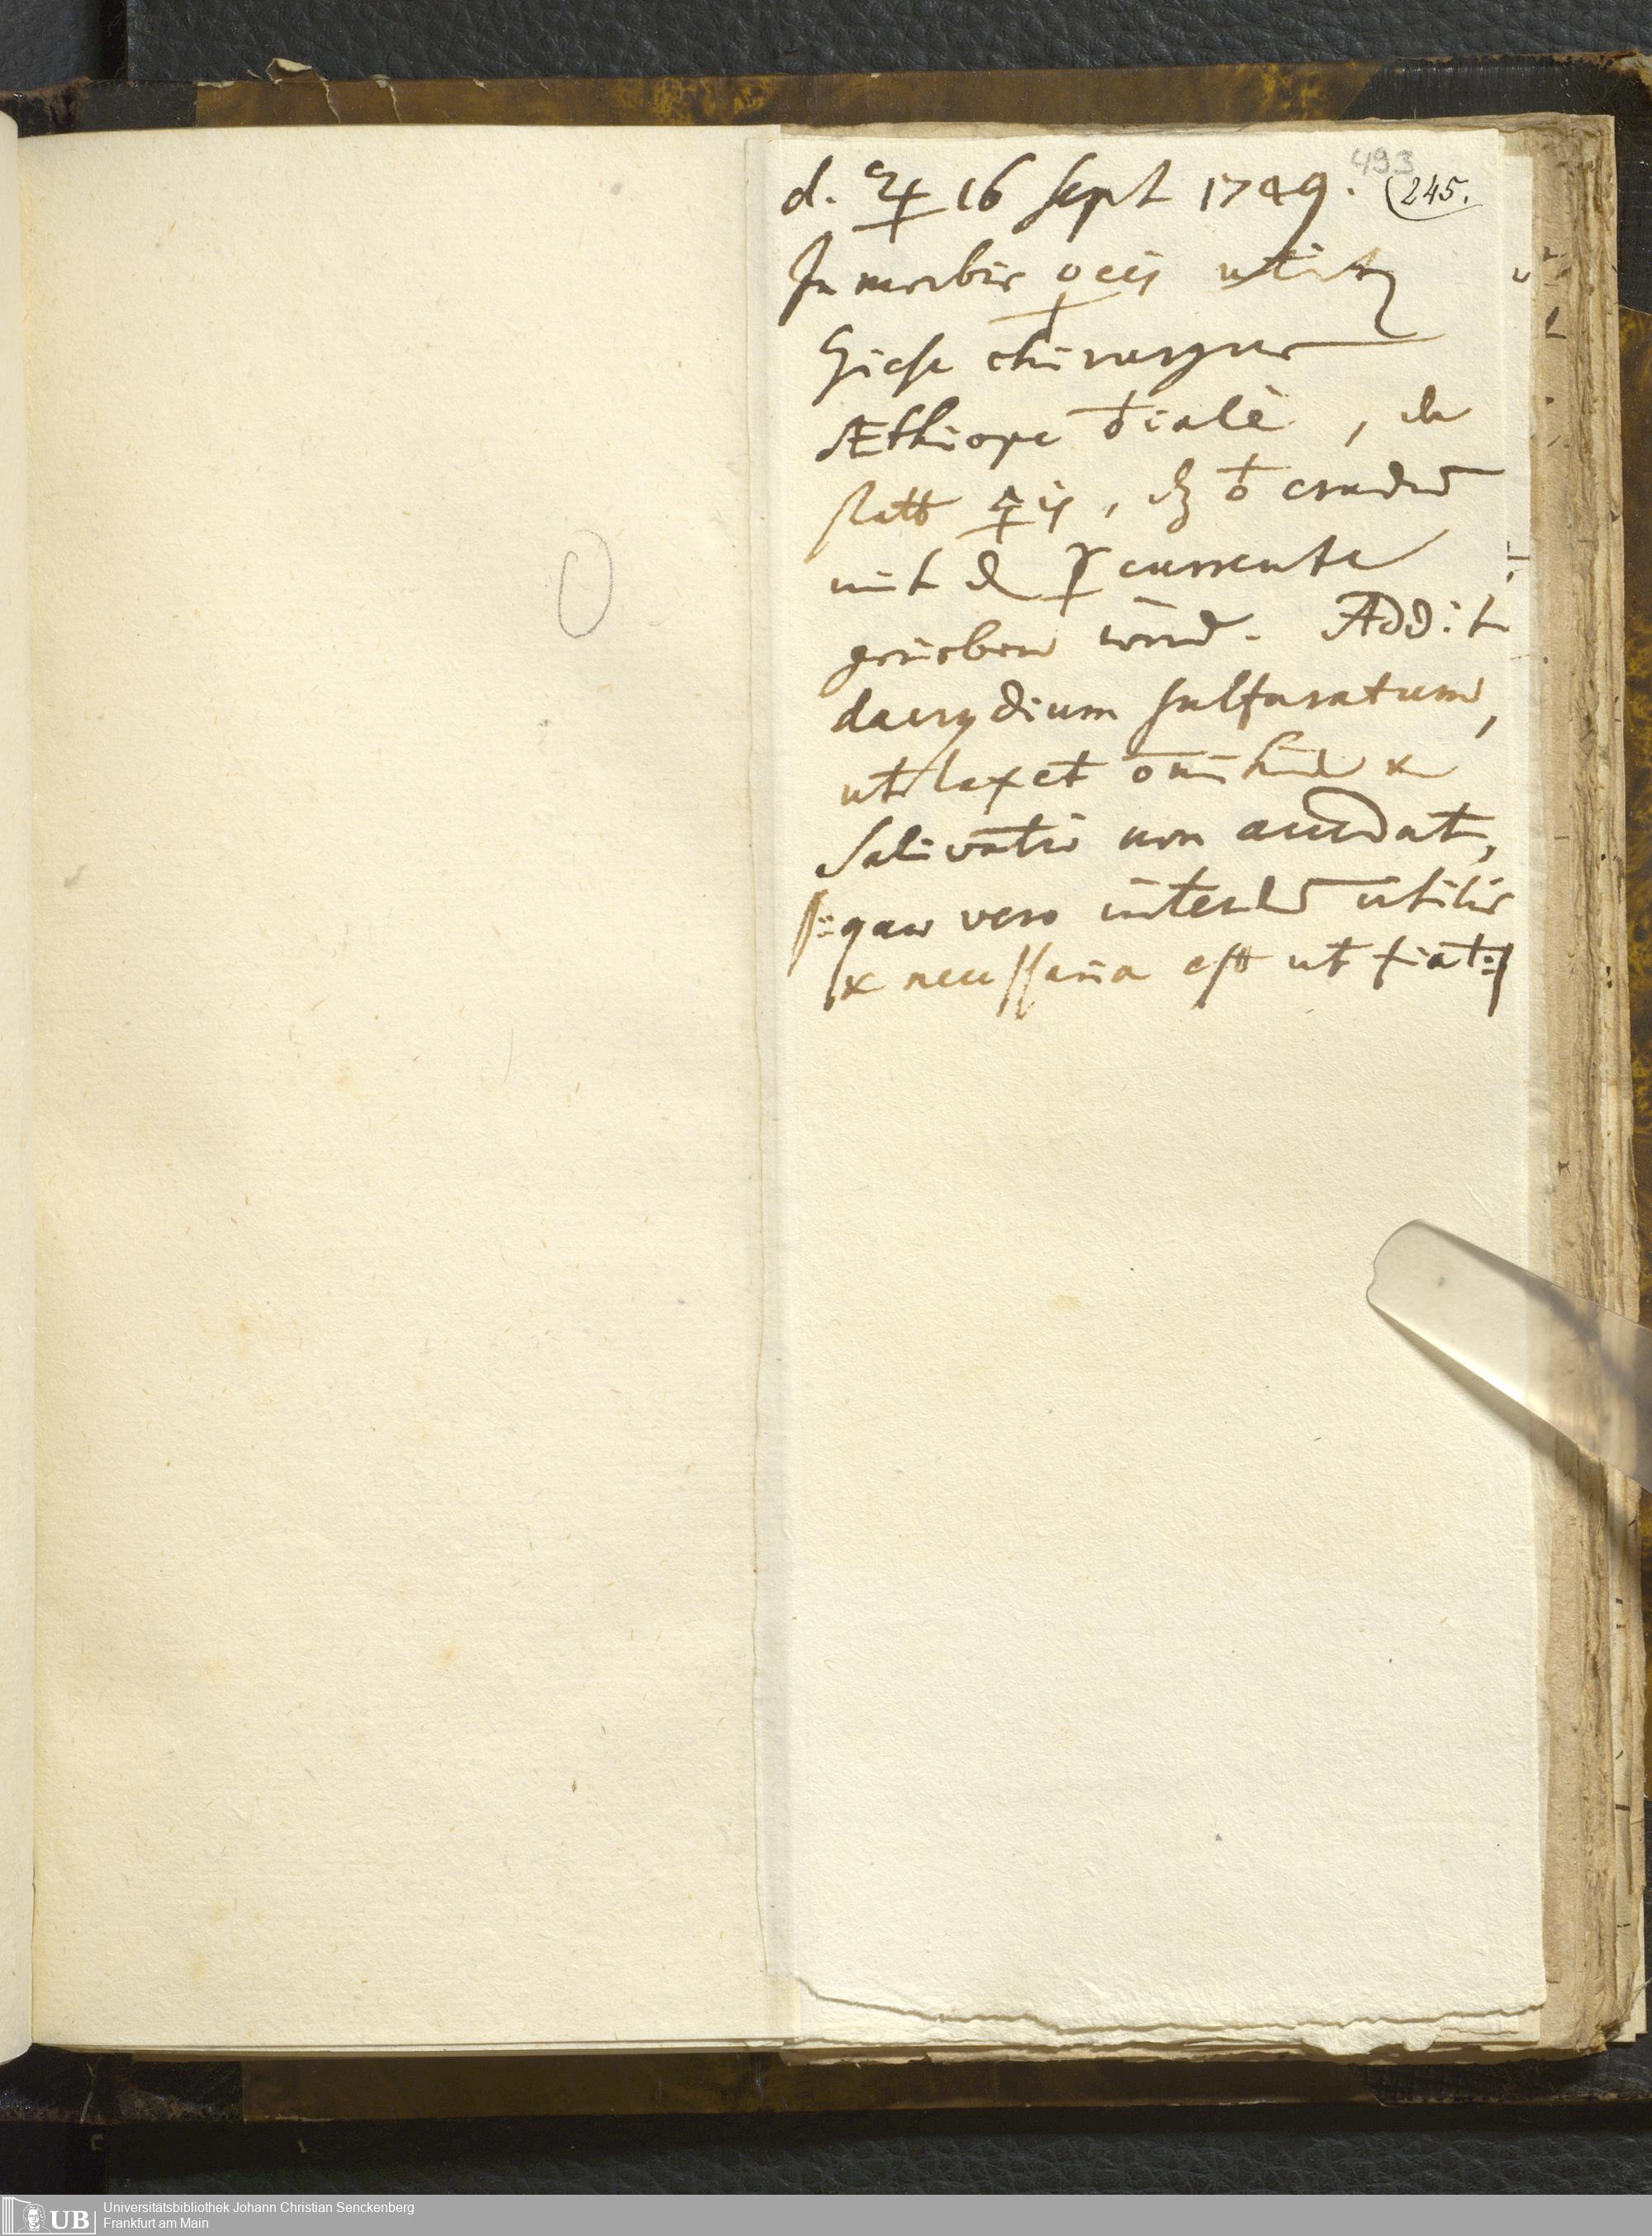 493
d. ♃ 16 Sept 1749. (245.
In morbis ♀eis utitur
Giese chirurgus
Æthiope ♁iale, da
statt 🜍is, dz ♁ crudum
mit d ☿ currente
gerieben wird. Addit
dacrydium sulfuratum,
ut laxet omnino &
Salivatio non accedat,
/: quae vero interdum utilis
& necessaria est ut fiat :/
UB Universitätsbibliothek Johann Christian Senckenberg
Frankfurt am Main